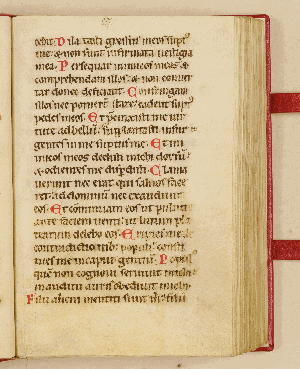 cebit. Dilatasti gressus meos supt'
me & non sunt infirmata uestigia
mea. Persequar inimicos meos &
comprehendam illos & non conuer
tar donec deficiant. Confringam
illos nec poterunt stare cadent supt'
pedes meos. Et precinxisti me uir
tute ad bellum supplantasti insur
gentes in me suptus me. Et ini
micos meos dedisti michi dorsu
& odientes me disp̄didi. Clama
uerunt nec erat qui saluos face
ret ad dominum nec exaudiuit
eos. Et comminuam eos ut puluere
ante faciem uenti ut lutum pla
tearum delebo eos. Eripies me de
contradictionib; populi consti
tues me in caput gentium. Popul'
quem non cognoui seruiuit michi
in auditu auris obediuit michi.
Filii alieni mentiti sunt m̄ filii